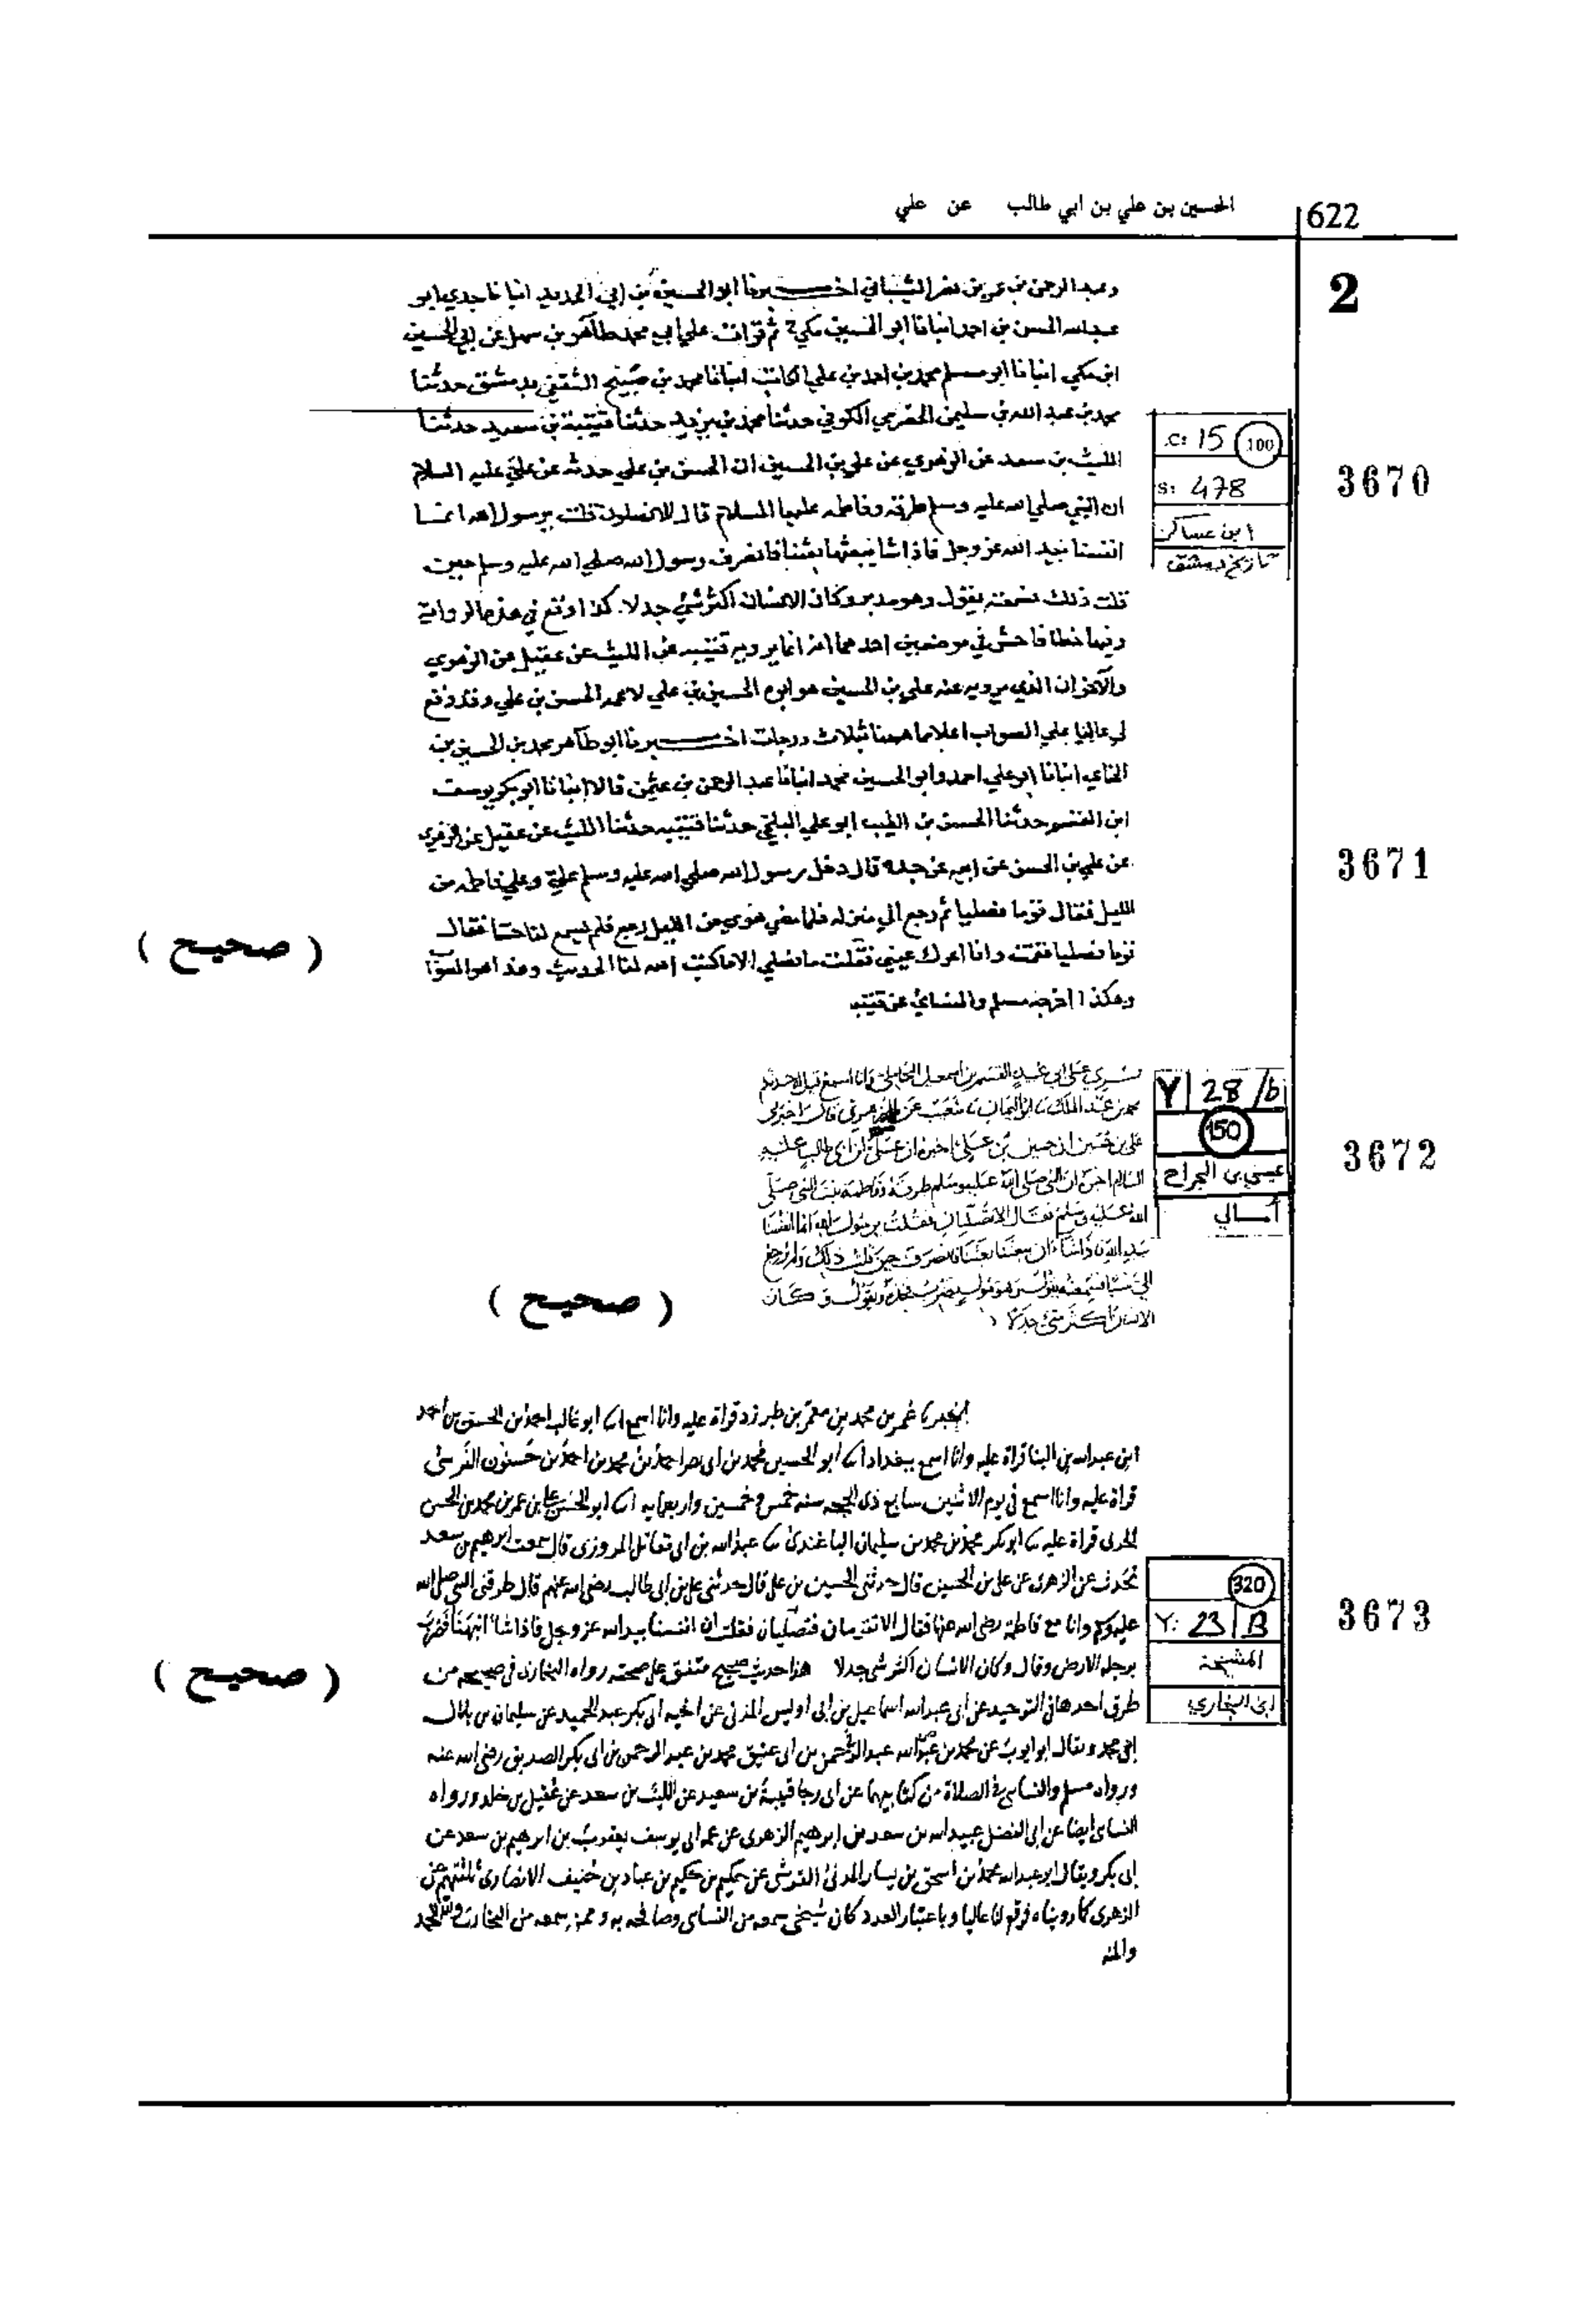 622
الحسين بن علي بن ابي طالب عن علي
2
وعبد الرحمن بن عمر بن نصر الشيباني اخبرنا ابو الحسين بن ابي الحديد انبانا جدي ابو
عبد الله الحسن بن احمد انبانا ابو الحسين مكي ح ثم قرات علي ابي محمد طاهر بن سهل عن ابي الحسين
ابن مكي انبانا ابو مسلم محمد بن احمد بن علي الكاتب انبانا محمد بن صبيح الثقفي بدمشق حدثنا
محمد بن عبد الله بن سليمن الحضرمي الكوفي حدثنا محمد بن يزيد حدثنا قتيبة بن سعيد حدثنا
C: 15 100
الليث بن سعد عن الزهري عن علي بن الحسين ان الحسن بن علي حدثه عن علي عليه السلام
3670
S: 478
ان النبي صلي الله عليه وسلم طرقه وفاطمه عليهما السلام قال الا تصلون قلت يرسول الله انما
ابن عساكر
انفسنا بيد الله عز وجل فاذا شا يبعثها بعثنا فانصرف رسول الله صلي الله عليه وسلم حين
تاريخ دمشق
قلت ذلك فسمعته يقول وهو مدبر وكان الانسان اكثر شيء جدلا. كذا وقع في هذه الرواية
وفيها خطا فاحش في موضعين احدهما انه انما يرويه قتيبه عن الليث عن عقيل عن الزهري
والآخر ان الذي يرويه عنه علي بن الحسين هو ابوه الحسين بن علي لا عمه الحسن بن علي وقد وقع
لي عاليا علي الصواب اعلا مما هاهنا بثلاث درجات اخبرنا ابو طاهر محمد بن الحسين بن
الحناي انبانا ابو علي احمد وابو الحسين محمد انبانا عبد الرحمن بن عثمن قالا انبانا ابو بكر يوسف
ابن القسم حدثنا الحسن بن الطيب ابو علي البلخي حدثنا قتيبه حدثنا الليث عن عقيل عن الزهري
عن علي بن الحسن عن ابيه عن جده قال دخل رسول الله صلي الله عليه وسلم علي وعلي فاطمه من
3671
الليل فقال قوما فصليا ثم رجع الي منزله فلما مضي هوي من الليل رجع فلم يسمع لنا حسا فقال
( صحيح )
قوما فصليا فقمت وانا اعرك عيني فقلت ما نصلي الا ما كتب الله لنا الحديث وهذا هو الصواب
وهكذا اخرجه مسلم والنسائي عن قتيبه
قري علي ابي عبيد القسم بن اسمعيل المحاملي وانا اسمع قيل له حدثكم
Y 28/b
محمد بن عبد الملك ابو اليمان شعيب عن الزهري قال اخبرني
150
علي بن حسين ان حسين بن علي اخبره ان علي بن ابي طالب عليه
3672
عيسى بن الجراح
السلام اخبره ان النبي صلى الله عليه وسلم طرقه وفاطمة بنت النبي صلى
أمالي
الله عليه وسلم فقال الا تصليان فقلت يرسول الله انما انفسنا
بيد الله فاذا شاء ان يبعثنا بعثنا فانصرف حين قلت ذلك ولم يرجع
الي شيا فسمعته يقول وهو مول يضرب فخذه ويقول وكان
الانسان اكثر شيء جدلا
( صحيح )
اخبرنا عمر بن محمد بن معمر بن طبرزد قراة عليه وانا اسمع انا ابو غالب احمد بن الحسن بن احمد
ابن عبد الله بن البنا قراة عليه وانا اسمع ببغداد انا ابو الحسين محمد بن ابي نصر احمد بن محمد بن احمد بن حسنون النرسي
قراة عليه وانا اسمع في يوم الاثنين سابع ذي الحجه سنه خمس وخمسين واربعمايه انا ابو الحسن علي بن عمر بن محمد بن الحسن
الحربي قراة عليه نا ابو بكر محمد بن محمد بن سليمان الباغندي نا عبد الله بن ابي المروزي قال سمعت ابرهيم بن سعد
يحدث عن الزهري عن علي بن الحسين قال حدثني الحسين بن علي قال حدثني علي بن ابي طالب رضي الله عنهم قال طرقني النبي صلى الله
320
عليه وسلم وانا مع فاطمة رضي الله عنها فقال الا تقومان فتصليان فقلت ان انفسنا بيد الله عز وجل فاذا شا انبهنا فضرب
Y: 23/B
3673
برجله الارض وقال وكان الانسان اكثر شي جدلا هذا حديث صحيح متفق على صحته رواه البخاري في صحيحه من
المشيخة
( صحيح )
طرق احدها في التوحيد عن ابي عبد الله اسماعيل بن ابي اويس المدني عن اخيه ابي بكر عبد الحميد عن سليمان بن بلال
ابن البخاري
ابي محمد ويقال ابو ايوب عن محمد بن عبد الله عبد الرحمن بن ابي عتيق محمد بن عبد الرحمن بن ابي بكر الصديق رضي الله عنه
ورواه مسلم والنساي في الصلاة من كتابيهما عن ابي رجا قتيبة بن سعيد عن الليث بن سعد عن عقيل بن خلد ورواه
النساي ايضا عن ابي الفضل عبيد الله بن سعد بن ابرهيم الزهري عن عمه ابي يوسف يعقوب بن ابرهيم بن سعد عن
ابي بكر ويقال ابو عبد الله محمد بن اسحق بن يسار المدني القرشي عن حكيم بن حكيم بن عباد بن حنيف الانصاري ثلثتهم عن
الزهري كما رويناه فوقع لنا عاليا وباعتبار العدد كان شيخي سمعه من النساي وصافحه به وممن سمعه من البخاري ولله الحمد
والمنه